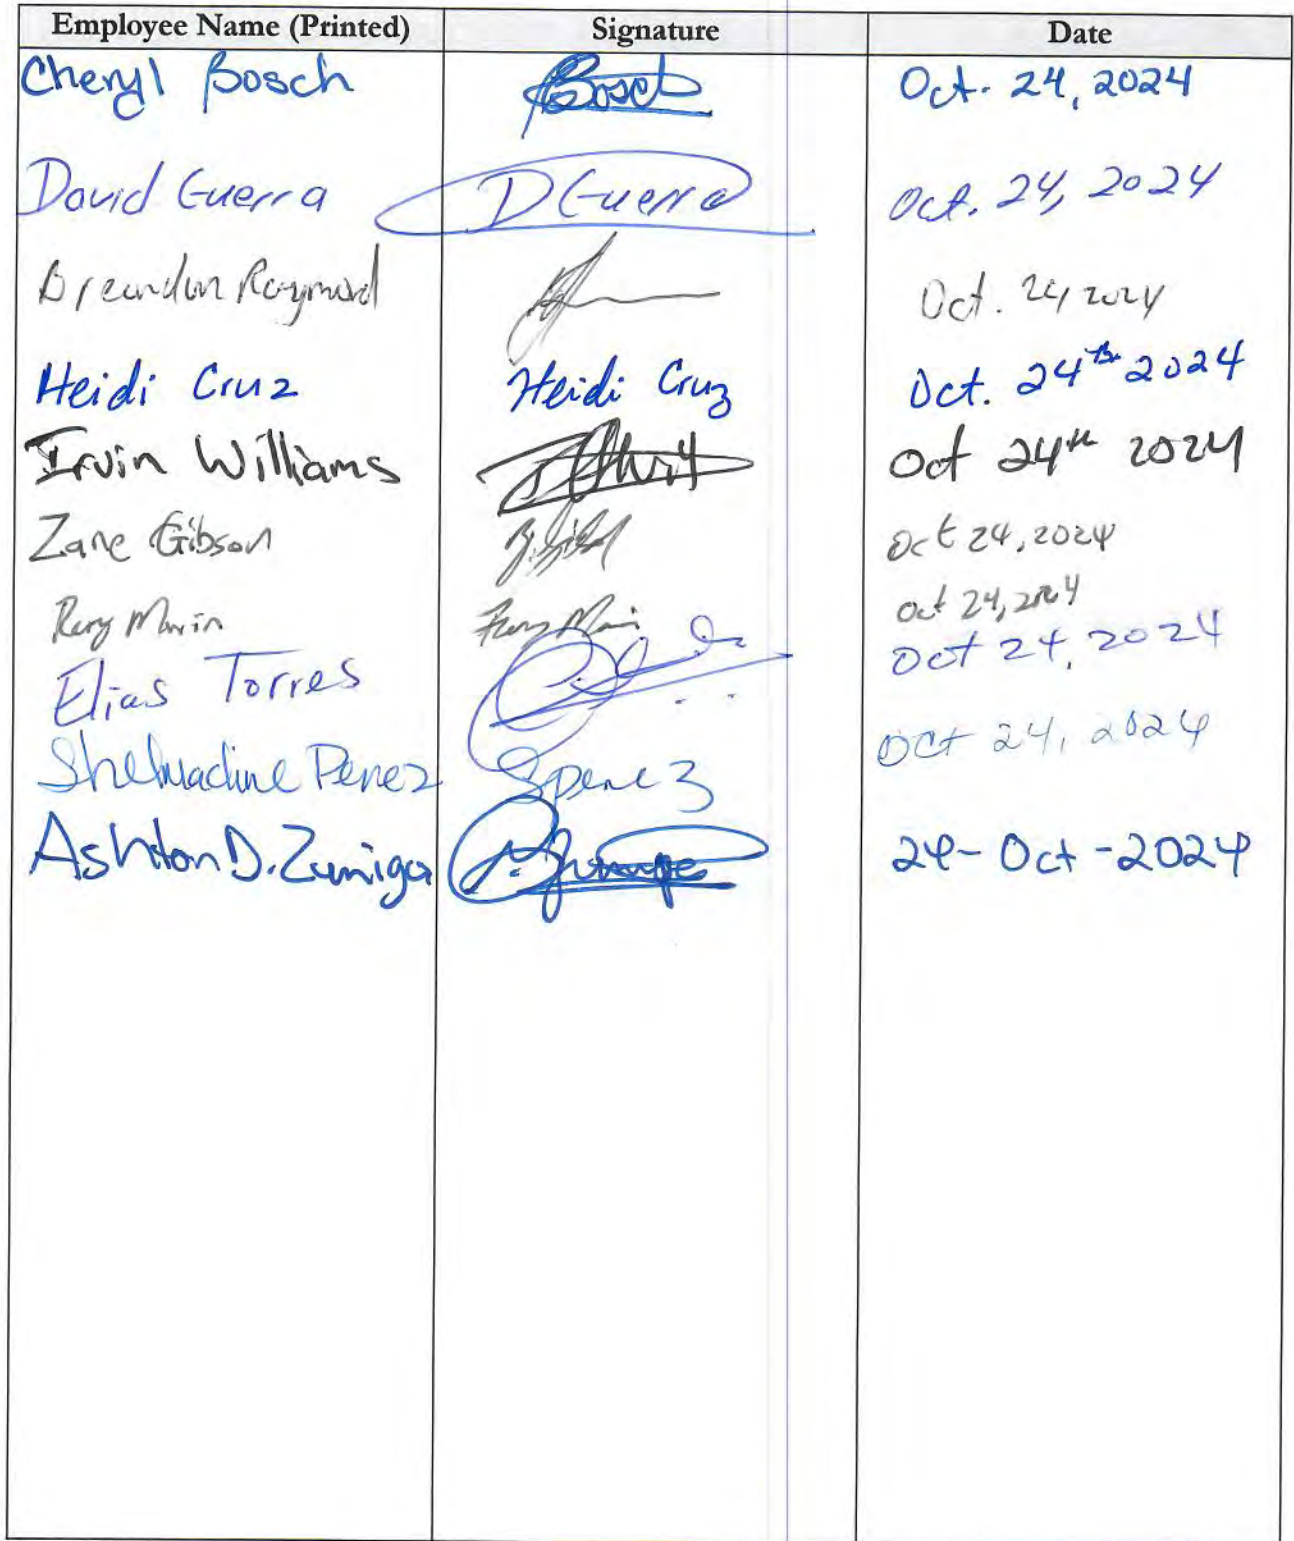 Employee Name (Printed) Signature Date
Cheryl Bosch Bosch Oct. 24, 2024
David Guerra D Guerra Oct. 24, 2024
Raymond Oct. 24, 2024
Heidi Cruz Heidi Cruz Oct. 24th 2024
Irvin Williams Oct 24th 2024
Zane Gibson Oct 24, 2024
Oct 24, 2024
Elias Torres Oct 24, 2024
Perez SPerez Oct 24, 2024
Ashton D. Zuniga 24-Oct-2024